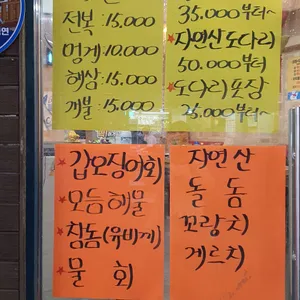 전복:15.000
멍게:10.000
해삼:15.000
개불:15.000
35.000부터~
자연산도다리
50.000부터
도다리포장
25.000부터~
갑오징어회
모듬해물
참돔(유비끼)
물 회
자연산
돌돔
꼬랑치
게르치